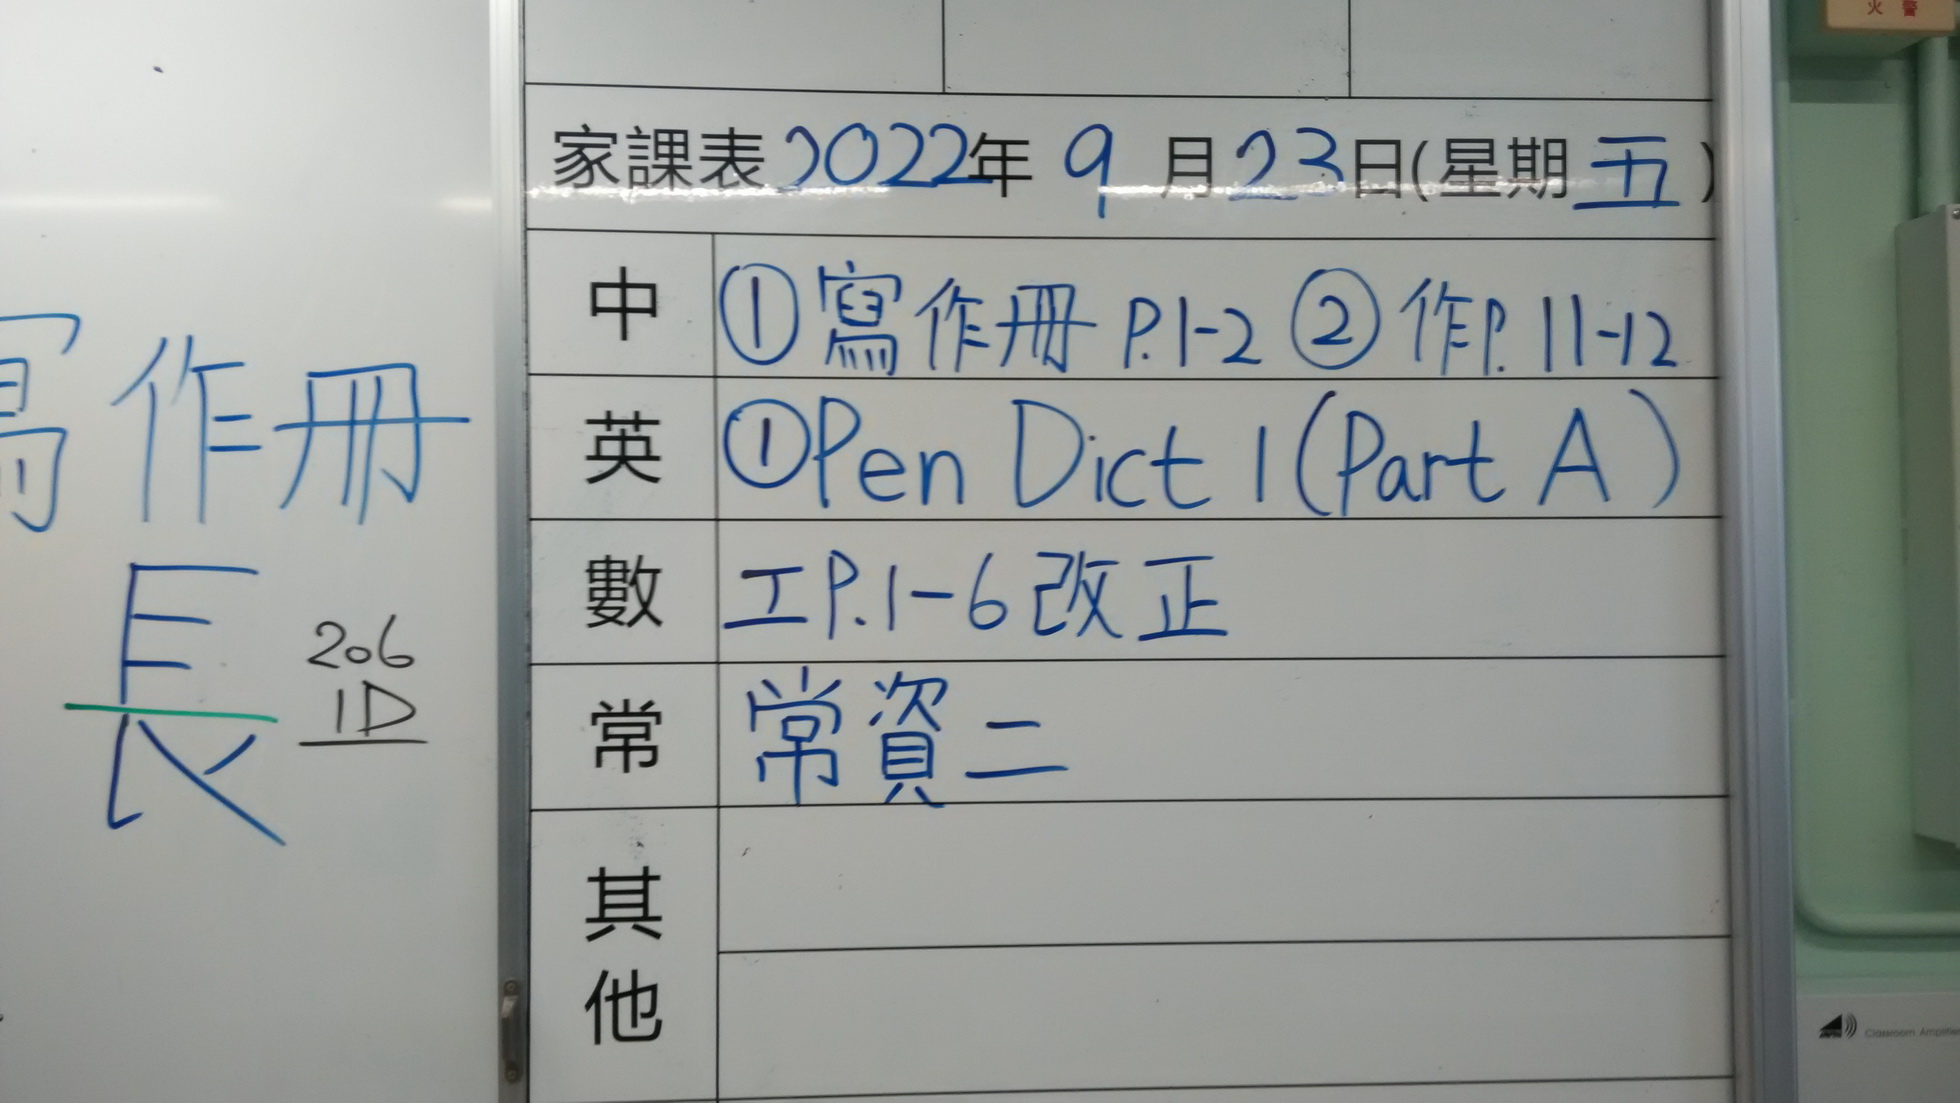 火警
家課表 2022年 9月23日(星期五)
中 ①寫作冊 P.1-2 ②作P. 11-12
英 ①Pen Dict 1 (Part A)
數 工P.1-6 改正
常 常資二
其他
寫作冊
長
206
1D
Classroom Amplifier